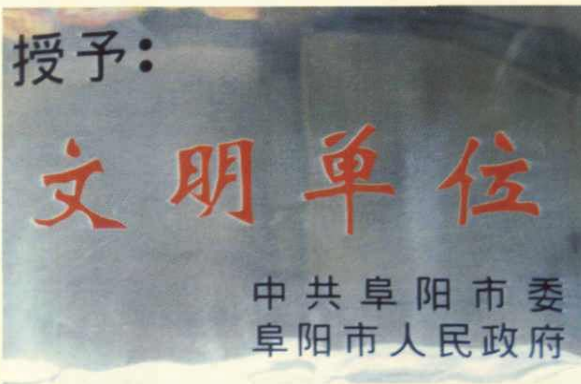 授予：
文明单位
中共阜阳市委
阜阳市人民政府